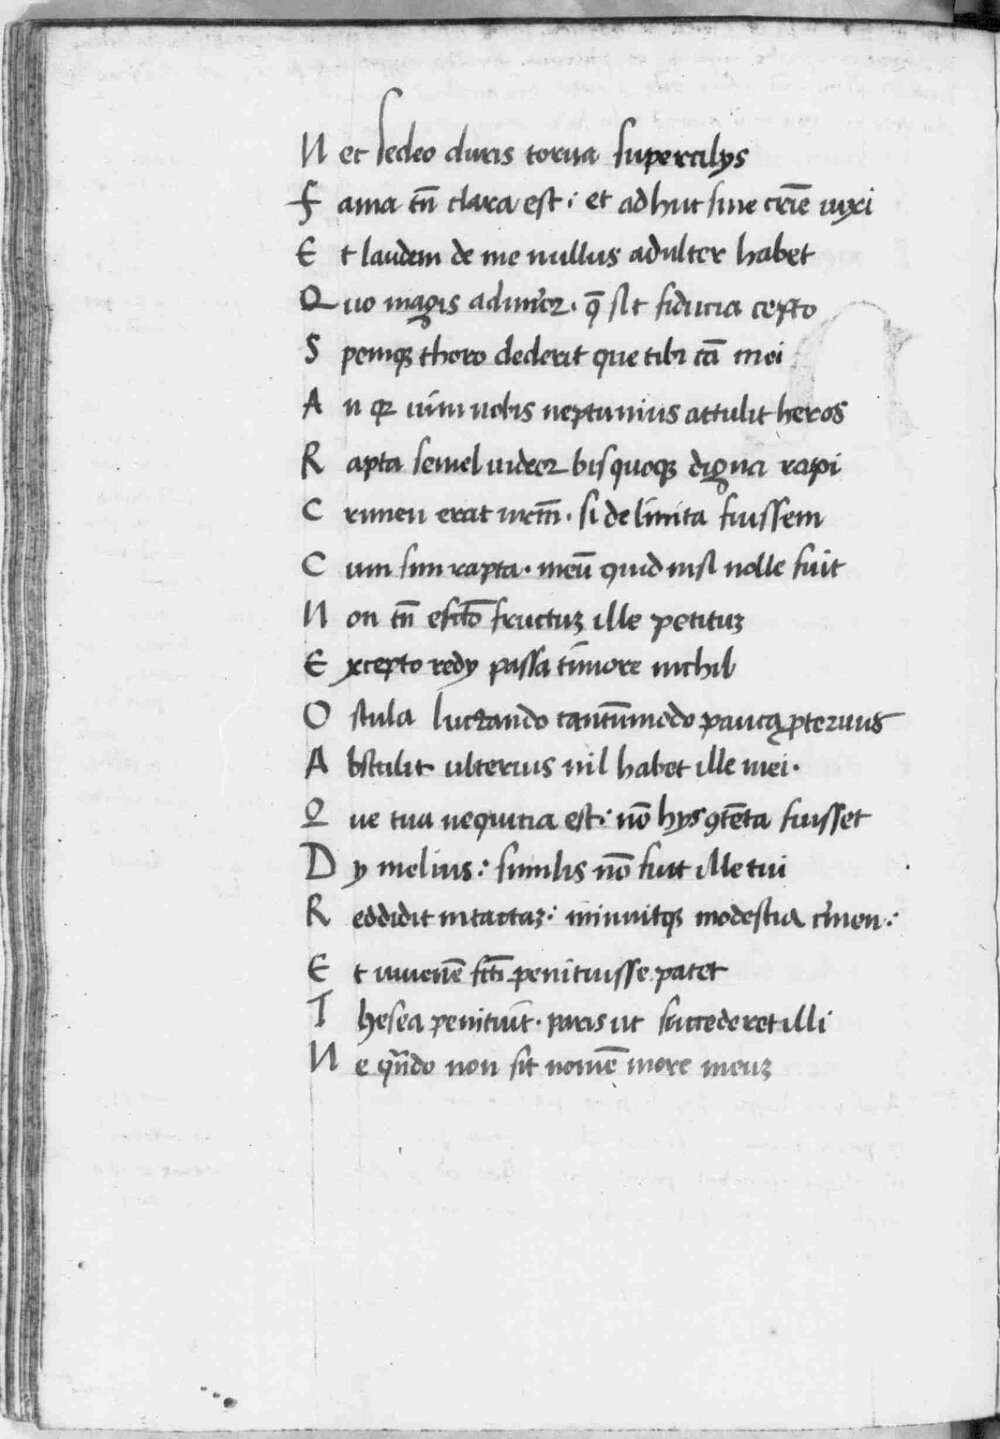 N ec sedeo duris torua supercilys
F ama tn̄ clara est : et adhuc sine crīe uixi
E t laudem de me nullus adulter habet
Q uo magis admiror · q̄ sit fiducia cepto
S pemqꝫ thoro dederit que tibi cā mei
A n qꝛ uim nobis neptunius attulit heros
R apta semel uideor bis quoqꝫ digna rapi
C rimen erat meū · si delinita fuissem
C um sim rapta · meū quid nisi nolle fuit
N on tn̄ efcō fructuꝫ ille petituꝫ
E xcepto redy passa timore nichil
O scula luctando tantūmodo pauca ꝓteruus
A bstulit ulterius nil habet ille mei ·
Q ue tua nequitia est : nō hys ꝯtēta fuisset
D y melius : similis nō fuit ille tui
R eddidit intactaꝫ : minuitqꝫ modestia crimen :
E t iuuenē fcī penituisse patet
T hesea penituit · paris ut succederet illi
N e qn̄do non sit nomē in ore meuꝫ